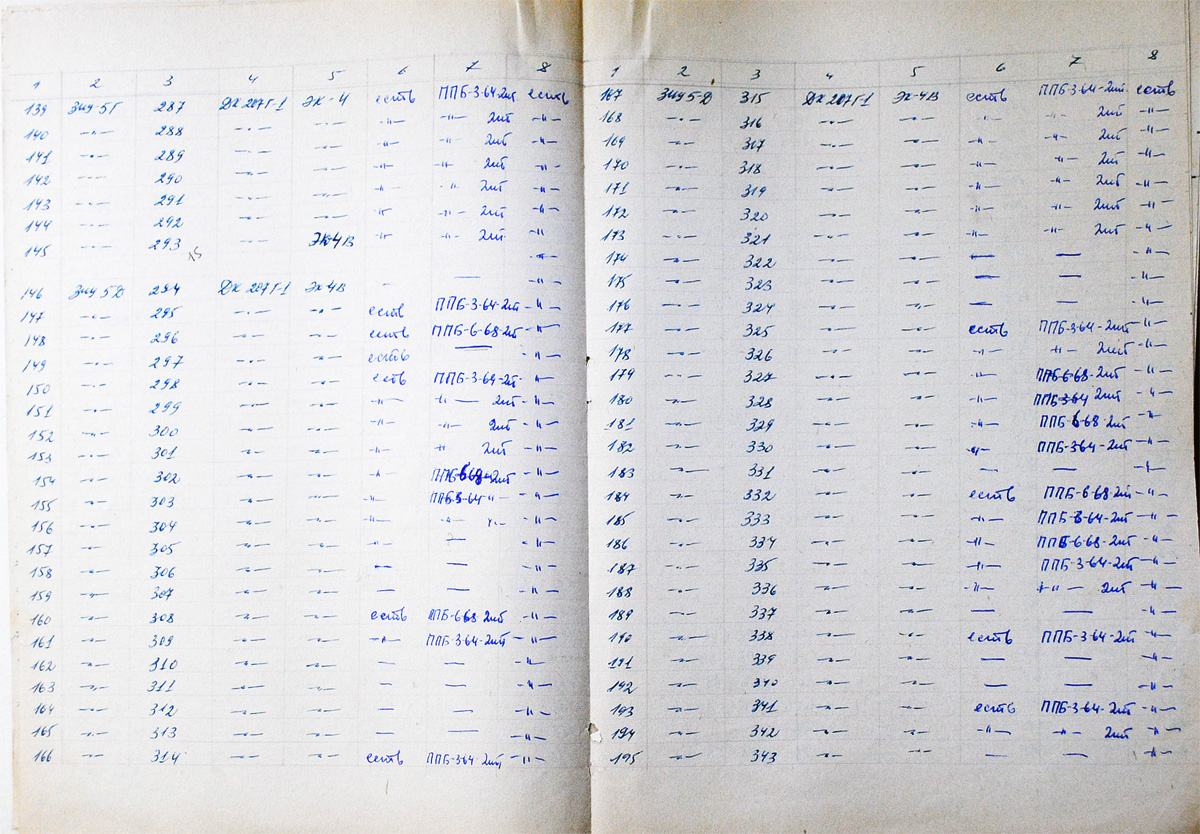 1 2 3 4 5 6 7 8
139 Зиу 5-Г 287 ДК 207Г-1 ЭК-4 есть ППБ-3-64-2шт есть
140 -"- 288 -"- -"- -"- -"- 2шт -"-
141 -"- 289 -"- -"- -"- -"- 2шт -"-
142 -"- 290 -"- -"- -"- -"- 2шт -"-
143 -"- 291 -"- -"- -"- -"- 2шт -"-
144 -"- 292 -"- -"- -"- -"- 2шт -"-
145 -"- 293 -"- ЭК-4В -"- -"- 2шт -"-
15
146 Зиу 5Д 294 ДК 207Г-1 ЭК 4В - — -"-
147 -"- 295 -"- -"- есть ППБ-3-64-2шт -"-
148 -"- 296 -"- -"- есть ППБ-6-68-2шт -"-
149 -"- 297 -"- -"- есть — -"-
150 -"- 298 -"- -"- есть ППБ-3-64-2шт -"-
151 -"- 299 -"- -"- -"- -"- 2шт -"-
152 -"- 300 -"- -"- -"- -"- 2шт -"-
153 -"- 301 -"- -"- -"- -"- 2шт -"-
154 -"- 302 -"- -"- -"- ППБ-6-68-2шт -"-
155 -"- 303 -"- -"- -"- ППБ-3-64 -"- -"-
156 -"- 304 -"- -"- -"- -"- -"- -"-
157 -"- 305 -"- -"- -"- -"- -"-
158 -"- 306 -"- -"- — — -"-
159 -"- 307 -"- -"- — — -"-
160 -"- 308 -"- -"- есть ППБ-6-68-2шт -"-
161 -"- 309 -"- -"- -"- ППБ-3-64-2шт -"-
162 -"- 310 -"- -"- — — -"-
163 -"- 311 -"- -"- — — -"-
164 -"- 312 -"- -"- — — -"-
165 -"- 313 -"- -"- — — -"-
166 -"- 314 -"- -"- есть ППБ-3-64-2шт -"-
1 2 3 4 5 6 7 8
167 Зиу 5-Д 315 ДК 207Г-1 ЭК-4В есть ППБ-3-64-2шт есть
168 -"- 316 -"- -"- -"- -"- 2шт -"-
169 -"- 317 -"- -"- -"- -"- 2шт -"-
170 -"- 318 -"- -"- -"- -"- 2шт -"-
171 -"- 319 -"- -"- -"- -"- 2шт -"-
172 -"- 320 -"- -"- -"- -"- 2шт -"-
173 -"- 321 -"- -"- -"- -"- 2шт -"-
174 -"- 322 -"- -"- — — -"-
175 -"- 323 -"- -"- — — -"-
176 -"- 324 -"- -"- — — -"-
177 -"- 325 -"- -"- есть ППБ-3-64-2шт -"-
178 -"- 326 -"- -"- -"- -"- 2шт -"-
179 -"- 327 -"- -"- -"- ППБ-6-68-2шт -"-
180 -"- 328 -"- -"- -"- ППБ-3-64 2шт -"-
181 -"- 329 -"- -"- -"- ППБ-6-68-2шт -"-
182 -"- 330 -"- -"- -"- ППБ-3-64-2шт -"-
183 -"- 331 -"- -"- — — -"-
184 -"- 332 -"- -"- есть ППБ-6-68-2шт -"-
185 -"- 333 -"- -"- -"- ППБ-3-64-2шт -"-
186 -"- 334 -"- -"- -"- ППБ-6-68-2шт -"-
187 -"- 335 -"- -"- -"- ППБ-3-64-2шт -"-
188 -"- 336 -"- -"- -"- -"- 2шт -"-
189 -"- 337 -"- -"- — — -"-
190 -"- 338 -"- -"- есть ППБ-3-64-2шт -"-
191 -"- 339 -"- -"- — — -"-
192 -"- 340 -"- -"- — — -"-
193 -"- 341 -"- -"- есть ППБ-3-64-2шт -"-
194 -"- 342 -"- -"- -"- -"- 2шт -"-
195 -"- 343 -"- -"- — — -"-